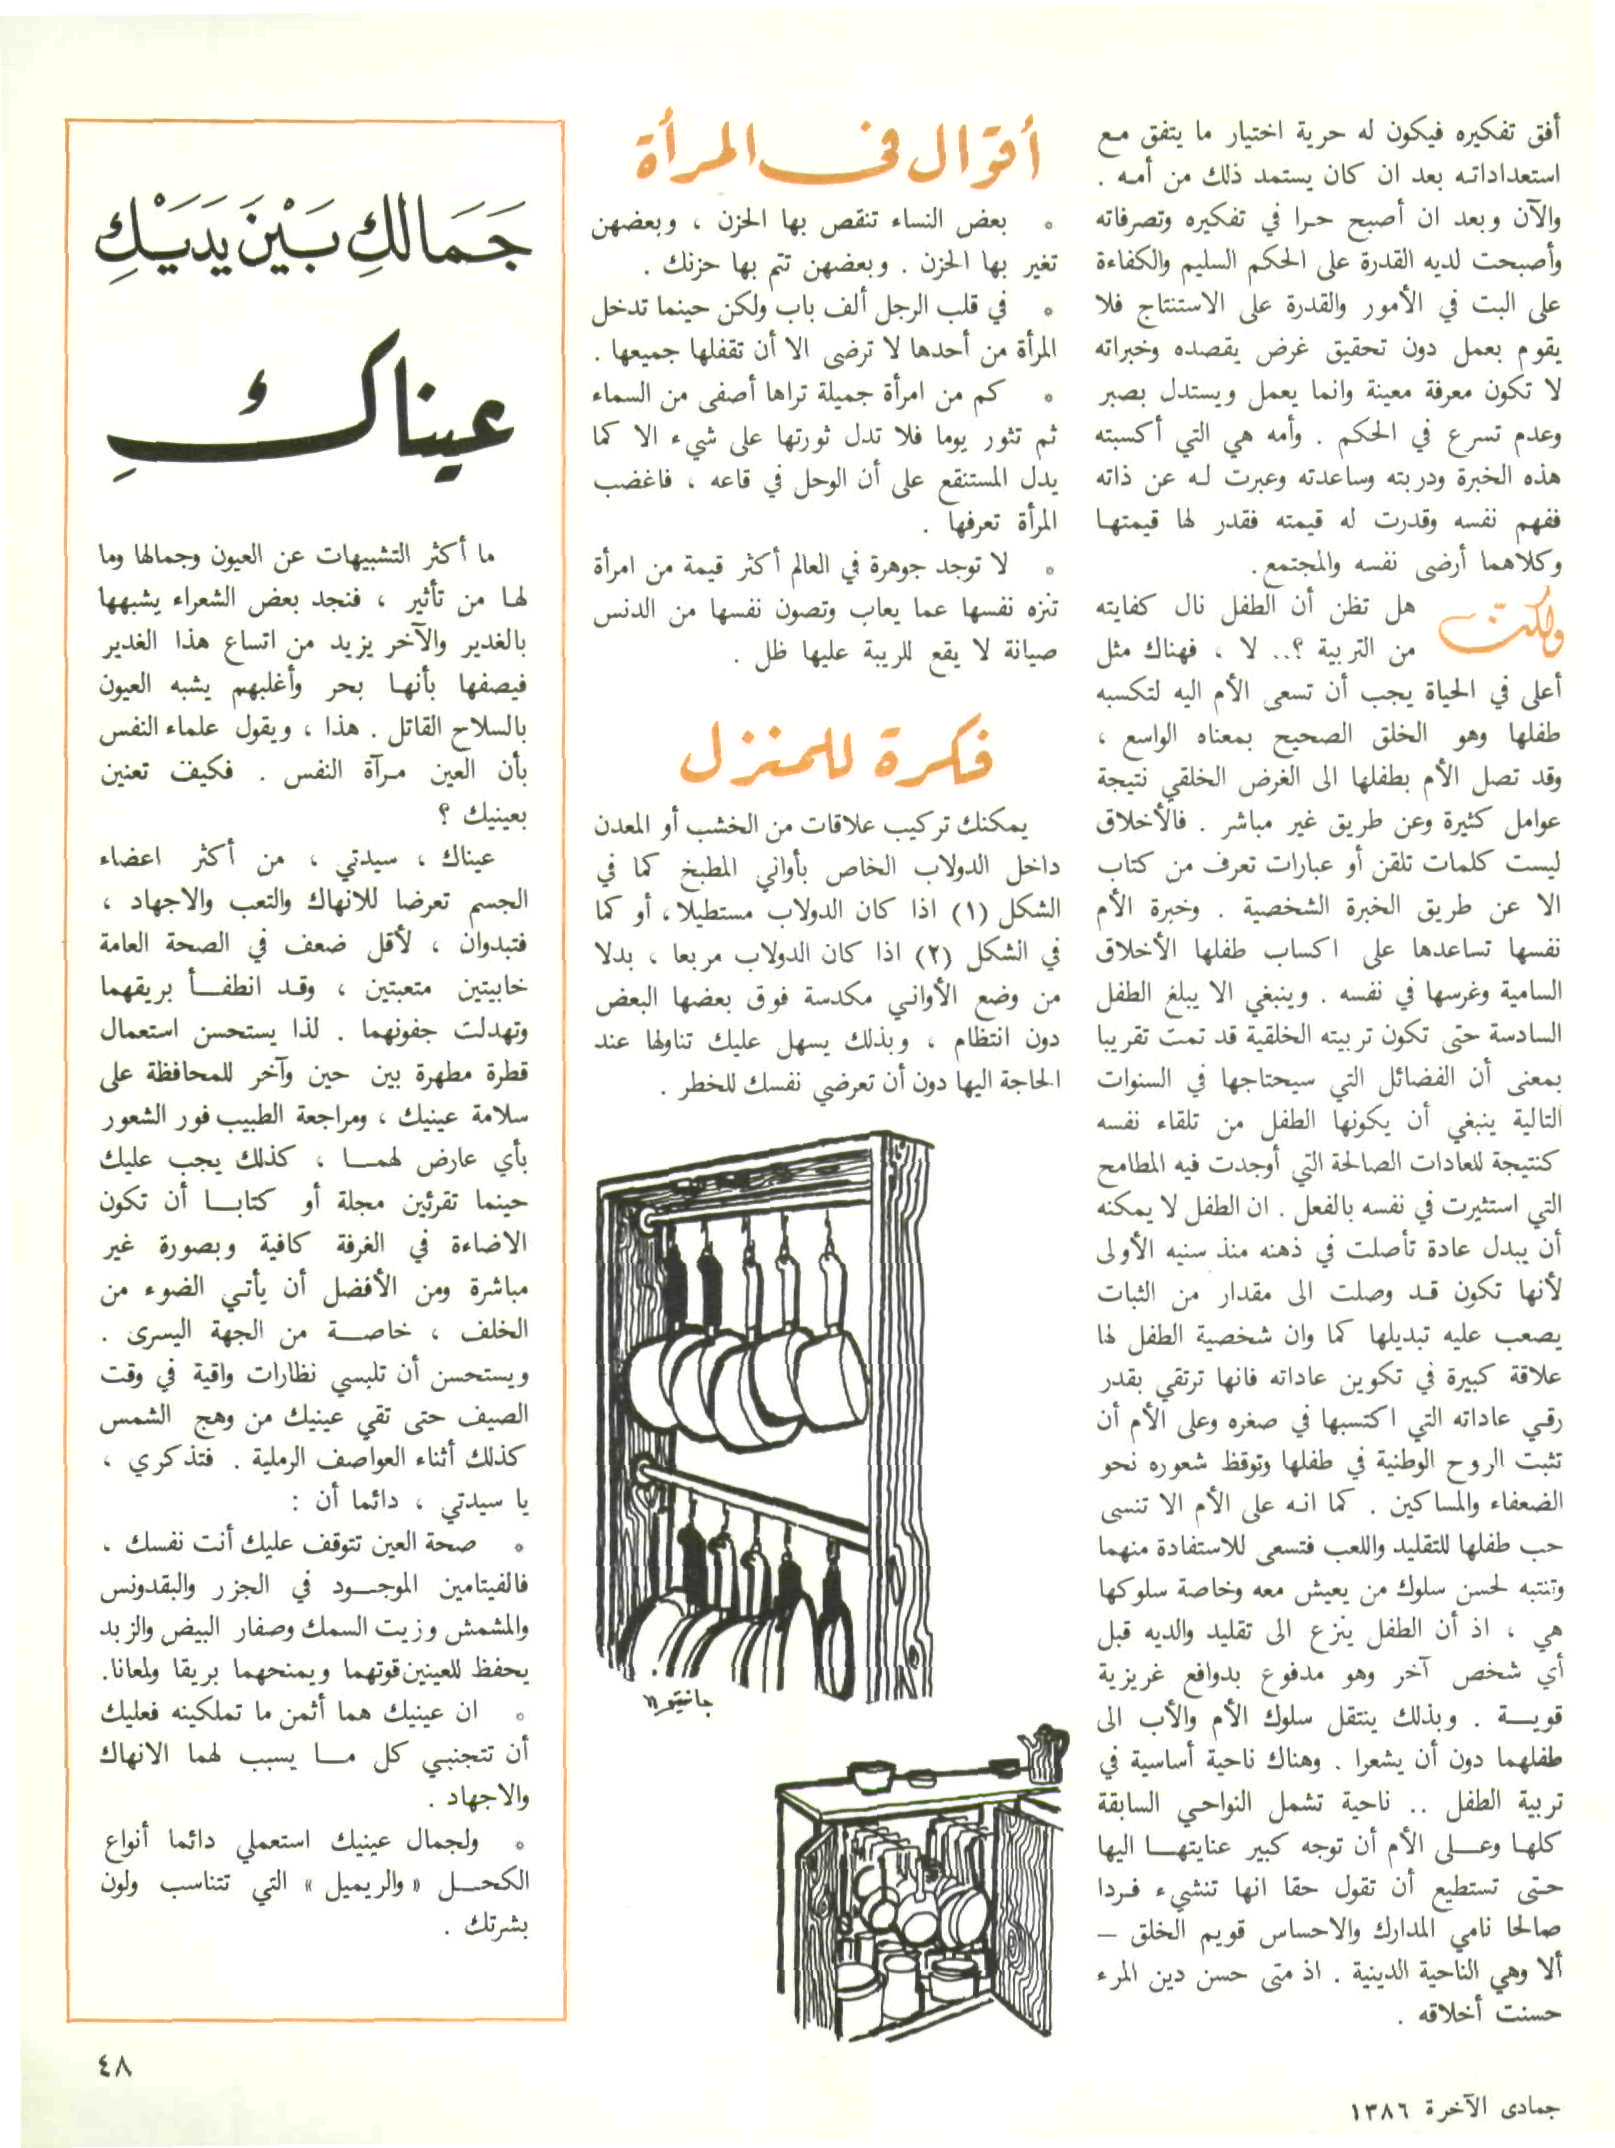 أفق تفكيره فيكون له حرية اختيار ما يتفق مع
استعداداته بعد ان كان يستمد ذلك من أمه .
والآن وبعد ان أصبح حرا في تفكيره وتصرفاته
وأصبحت لديه القدرة على الحكم السليم والكفاءة
على البت في الأمور والقدرة على الاستنتاج فلا
يقوم بعمل دون تحقيق غرض يقصده وخبراته
لا تكون معرفة معينة وانما يعمل ويستدل بصبر
وعدم تسرع في الحكم . وأمه هي التي أكسبته
هذه الخبرة ودربته وساعدته وعبرت له عن ذاته
ففهم نفسه وقدرت له قيمته فقدر لها قيمتها
وكلاهما أرضى نفسه والمجتمع .
ولكن هل تظن أن الطفل نال كفايته
من التربية ؟.. لا ، فهناك مثل
أعلى في الحياة يجب أن تسعى الأم اليه لتكسبه
طفلها وهو الخلق الصحيح بمعناه الواسع ،
وقد تصل الأم بطفلها الى الغرض الخلقي نتيجة
عوامل كثيرة وعن طريق غير مباشر . فالأخلاق
ليست كلمات تلقن أو عبارات تعرف من كتاب
الا عن طريق الخبرة الشخصية . وخبرة الأم
نفسها تساعدها على اكساب طفلها الأخلاق
السامية وغرسها في نفسه . وينبغي الا يبلغ الطفل
السادسة حتى تكون تربيته الخلقية قد تمت تقريبا
بمعنى أن الفضائل التي سيحتاجها في السنوات
التالية ينبغي أن يكونها الطفل من تلقاء نفسه
كنتيجة للعادات الصالحة التي أوجدت فيه المطامح
التي استثيرت في نفسه بالفعل . ان الطفل لا يمكنه
أن يبدل عادة تأصلت في ذهنه منذ سنيه الأولى
لأنها تكون قد وصلت الى مقدار من الثبات
يصعب عليه تبديلها كما وان شخصية الطفل لها
علاقة كبيرة في تكوين عاداته فانها ترتقي بقدر
رقي عاداته التي اكتسبها في صغره وعلى الأم أن
تثبت الروح الوطنية في طفلها وتوقظ شعوره نحو
الضعفاء والمساكين . كما انه على الأم الا تنسى
حب طفلها للتقليد واللعب فتسعى للاستفادة منهما
وتنتبه لحسن سلوك من يعيش معه وخاصة سلوكها
هي ، اذ أن الطفل ينزع الى تقليد والديه قبل
أي شخص آخر وهو مدفوع بدوافع غريزية
قوية . وبذلك ينتقل سلوك الأم والأب الى
طفلهما دون أن يشعرا . وهناك ناحية أساسية في
تربية الطفل .. ناحية تشمل النواحي السابقة
كلها وعلى الأم أن توجه كبير عنايتها اليها
حتى تستطيع أن تقول حقا انها تنشيء فردا
صالحا نامي المدارك والاحساس قويم الخلق –
ألا وهي الناحية الدينية . اذ متى حسن دين المرء
حسنت أخلاقه .
أقوال في المرأة
• بعض النساء تنقص بها الحزن ، وبعضهن
تغير بها الحزن . وبعضهن تتم بها حزنك .
• في قلب الرجل ألف باب ولكن حينما تدخل
المرأة من أحدها لا ترضى الا أن تقفلها جميعها .
• كم من امرأة جميلة تراها أصفى من السماء
ثم تثور يوما فلا تدل ثورتها على شيء الا كما
يدل المستنقع على أن الوحل في قاعه ، فاغضب
المرأة تعرفها .
• لا توجد جوهرة في العالم أكثر قيمة من امرأة
تنزه نفسها عما يعاب وتصون نفسها من الدنس
صيانة لا يقع للريبة عليها ظل .
فكرة للمنزل
يمكنك تركيب علاقات من الخشب أو المعدن
داخل الدولاب الخاص بأواني المطبخ كما في
الشكل (١) اذا كان الدولاب مستطيلا، أو كما
في الشكل (٢) اذا كان الدولاب مربعا ، بدلا
من وضع الأواني مكدسة فوق بعضها البعض
دون انتظام ، وبذلك يسهل عليك تناولها عند
الحاجة اليها دون أن تعرضي نفسك للخطر .
جَمَالكِ بَيْنَ يَدَيْكِ
عيناكِ
ما أكثر التشبيهات عن العيون وجمالها وما
لها من تأثير ، فنجد بعض الشعراء يشبهها
بالغدير والآخر يزيد من اتساع هذا الغدير
فيصفها بأنها بحر وأغلبهم يشبه العيون
بالسلاح القاتل . هذا ، ويقول علماء النفس
بأن العين مرآة النفس . فكيف تعنين
بعينيك ؟
عيناك ، سيدتي ، من أكثر اعضاء
الجسم تعرضا للانهاك والتعب والاجهاد ،
فتبدوان ، لأقل ضعف في الصحة العامة
خابيتين متعبتين ، وقد انطفأ بريقهما
وتهدلت جفونهما . لذا يستحسن استعمال
قطرة مطهرة بين حين وآخر للمحافظة على
سلامة عينيك ، ومراجعة الطبيب فور الشعور
بأي عارض لهما ، كذلك يجب عليك
حينما تقرئين مجلة أو كتابا أن تكون
الاضاءة في الغرفة كافية وبصورة غير
مباشرة ومن الأفضل أن يأتي الضوء من
الخلف ، خاصة من الجهة اليسرى .
ويستحسن أن تلبسي نظارات واقية في وقت
الصيف حتى تقي عينيك من وهج الشمس
كذلك أثناء العواصف الرملية . فتذكري ،
يا سيدتي ، دائما أن :
• صحة العين تتوقف عليك أنت نفسك ،
فالفيتامين الموجود في الجزر والبقدونس
والمشمش وزيت السمك وصفار البيض والزبد
يحفظ للعينين قوتهما ويمنحهما بريقا ولمعانا.
• ان عينيك هما أثمن ما تملكينه فعليك
أن تتجنبي كل ما يسبب لهما الانهاك
والاجهاد .
• ولجمال عينيك استعملي دائما أنواع
الكحل « والريميل » التي تتناسب ولون
بشرتك .
٤٨
جمادى الآخرة ١٣٨٦